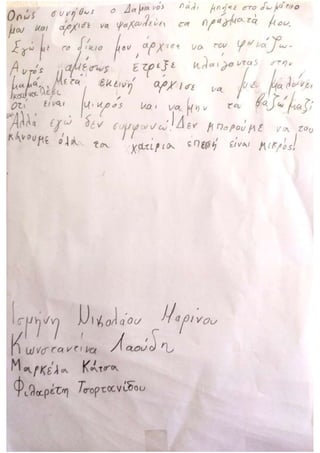 Οπώς συνήθως ο Δαμιανός πάλι μπήκε στο δωμάτιο
μου και άρχισε να ψαχουλεύει τα πράγματά μου.
Εγώ με το δίκιο μου, άρχισα να του φωνάζω.
Αυτός αμέσως έτρεξε κλαίγοντας στην
μαμά. Μετά εκείνη άρχισε να με μαλώνει
και να μου λέει
ότι είναι μικρός και να μην τα βάζω μαζί
του
Αλλά εγώ δεν συμφωνώ! Δεν μπορούμε να του
κάνουμε όλα τα χατίρια επειδή είναι μικρός!
Ισμήνη Νικολάου Μαρίνου
Κωνσταντίνα Λαούδη
Μαρκέλα Κάτσα
Φιλαρέτη Τσορτανίδου